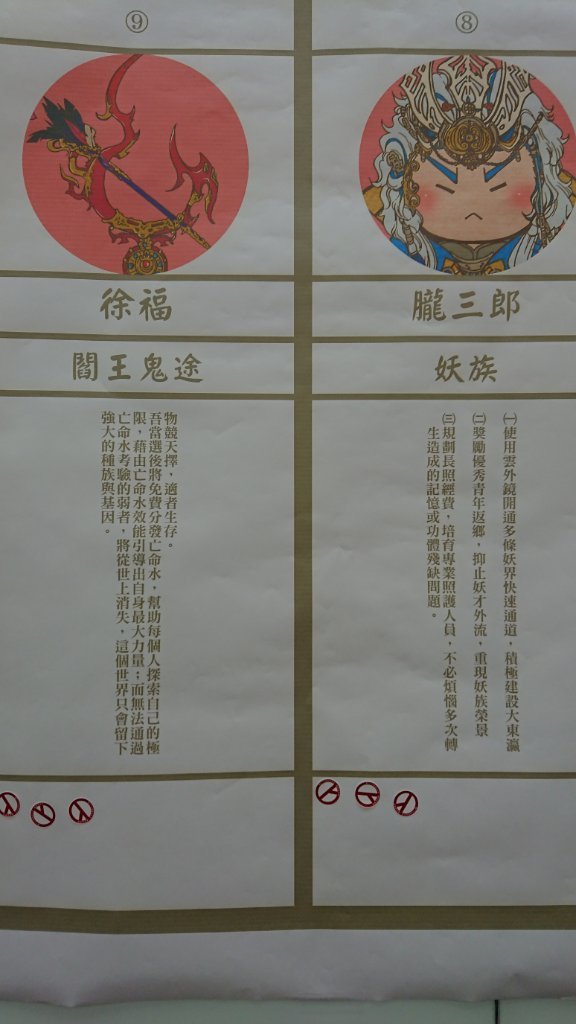 ⑧
朧三郎
妖族
㈠使用雲外鏡開通多條妖界快速通道，積極建設大東瀛
㈡獎勵優秀青年返鄉，抑止妖才外流，重現妖族榮景
㈢規劃長照經費，培育專業照護人員，不必煩惱多次轉
生造成的記憶或功體殘缺問題。
⑨
徐福
閻王鬼途
物競天擇，適者生存。
吾當選後將免費分發亡命水，幫助每個人探索自己的極
限，藉由亡命水效能引導出自身最大力量；而無法通過
亡命水考驗的弱者，將從世上消失，這個世界只會留下
強大的種族與基因。